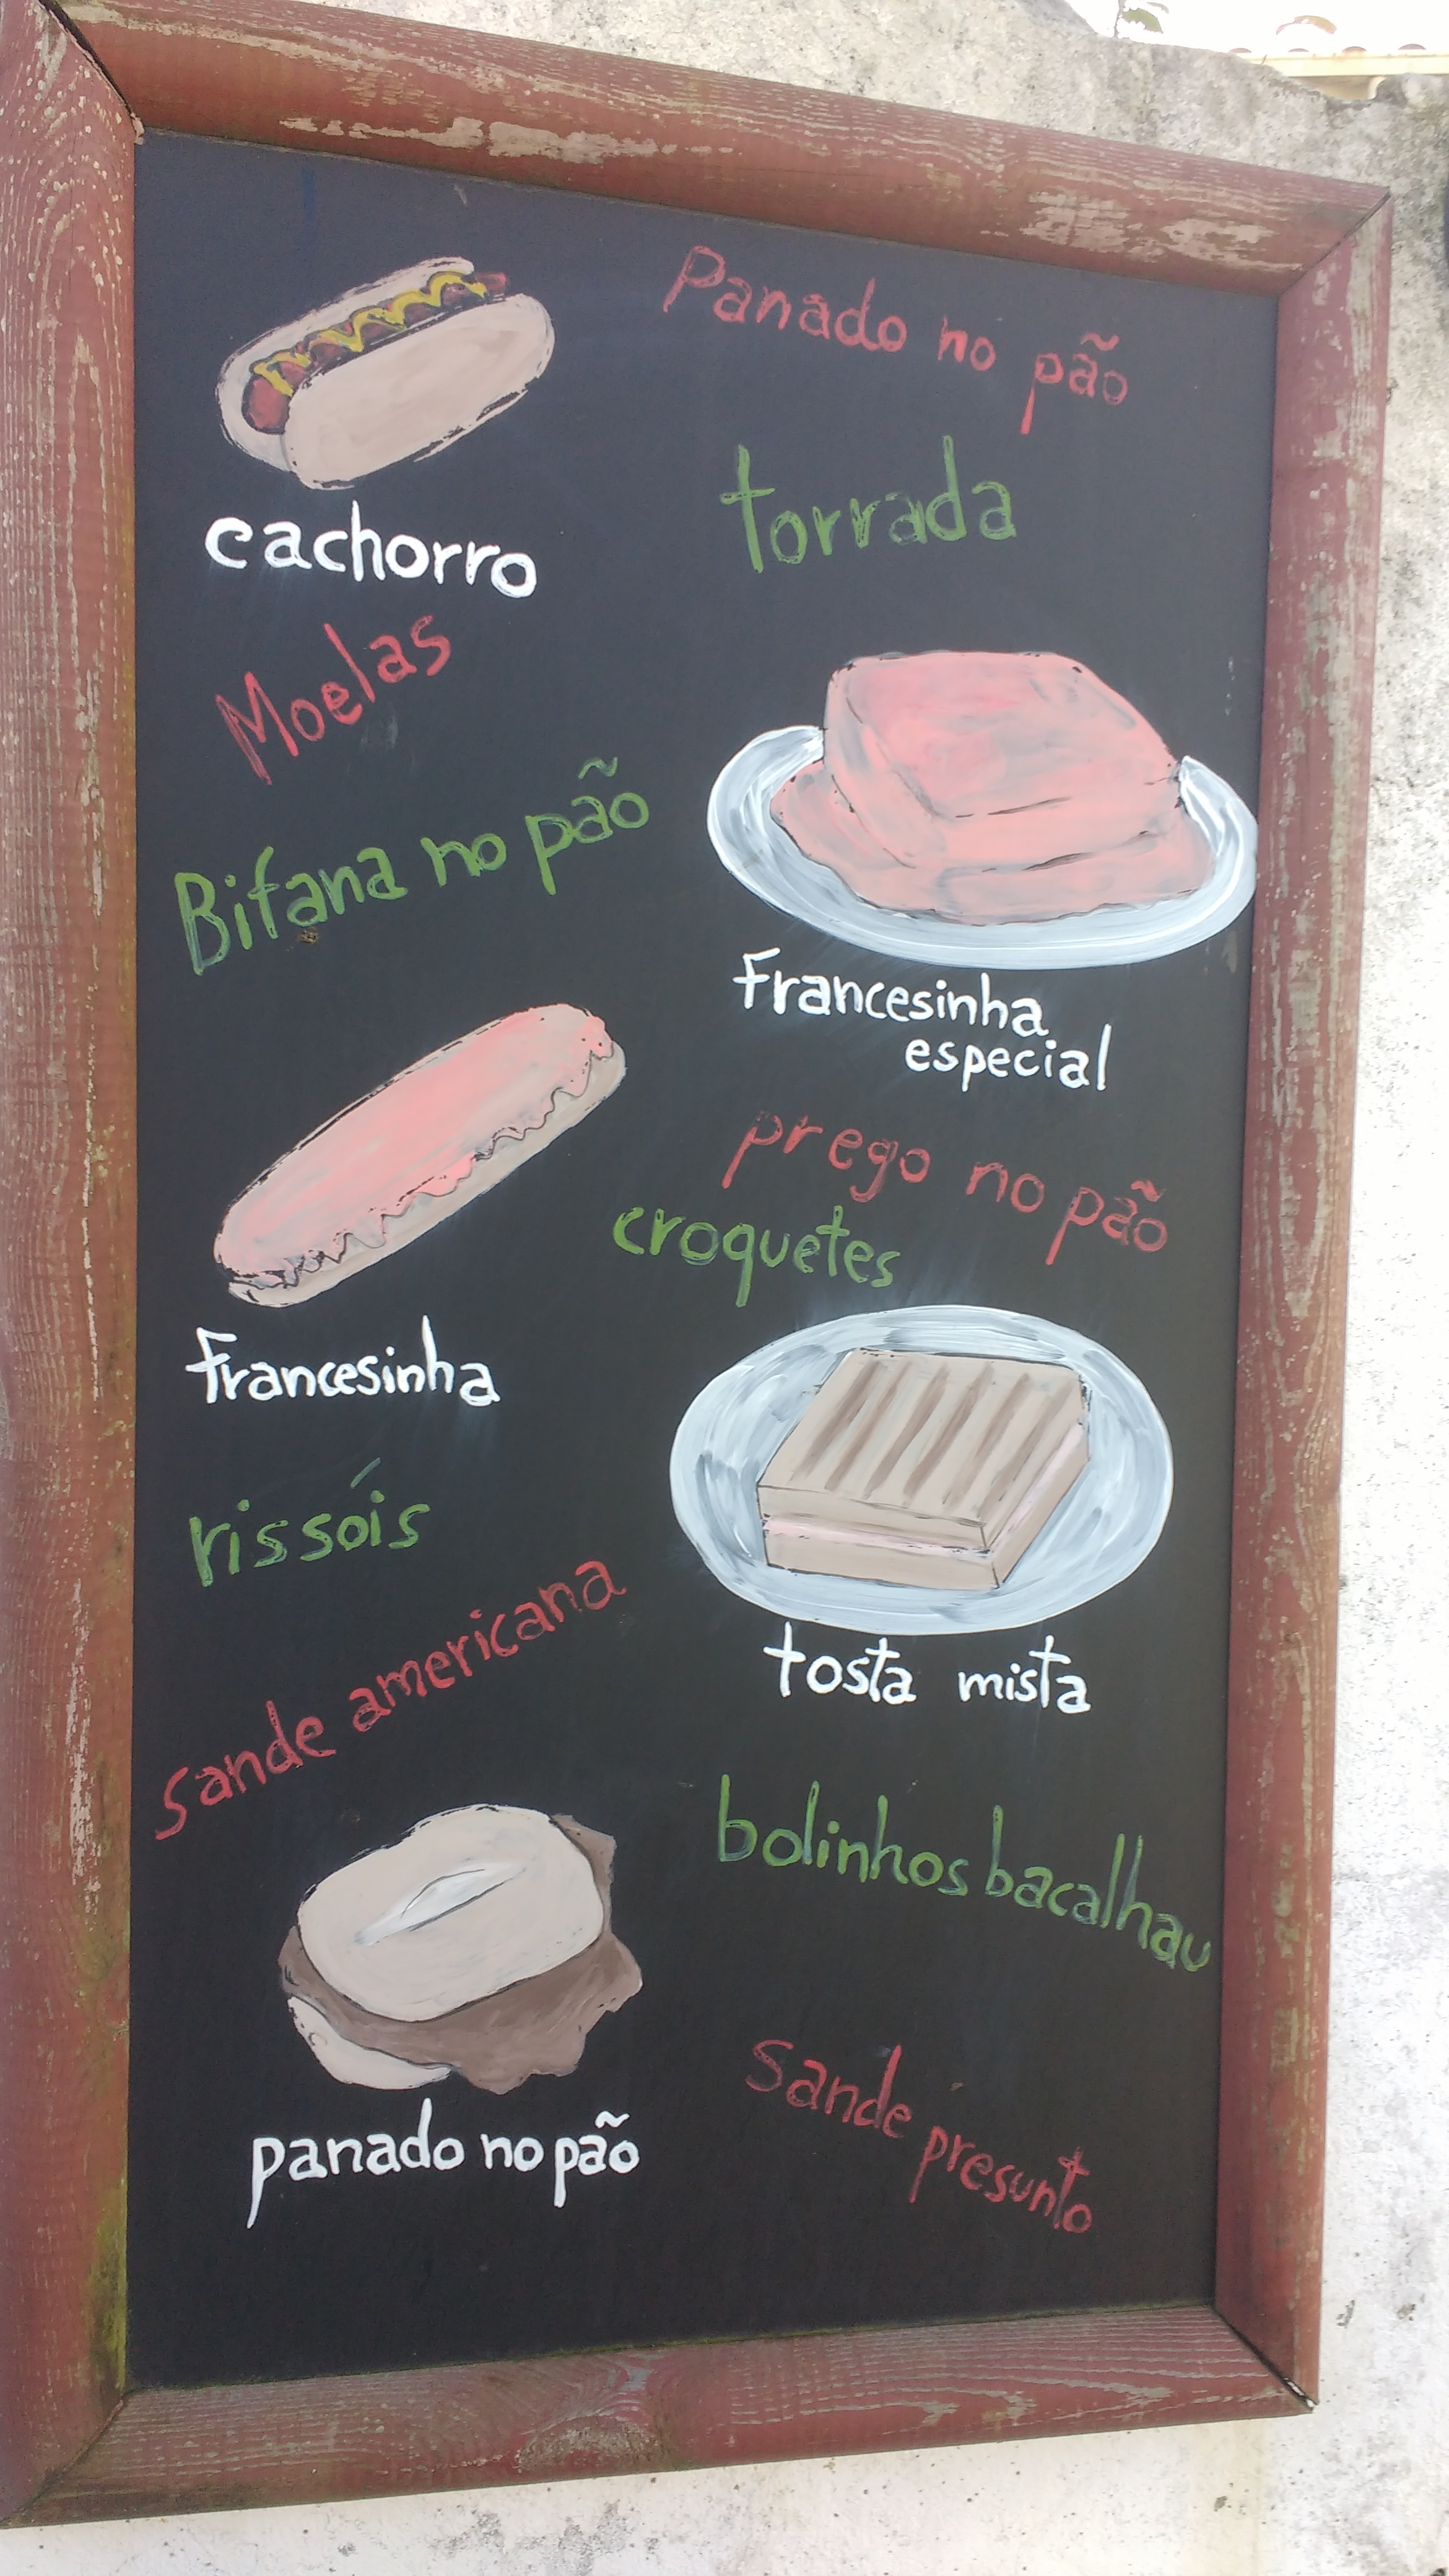 Panado no pão
cachorro
torrada
Moelas
Bifana no pão
Francesinha
especial
prego no pão
croquetes
Francesinha
rissóis
tosta mista
sande americana
bolinhos bacalhau
panado no pão
sande presunto